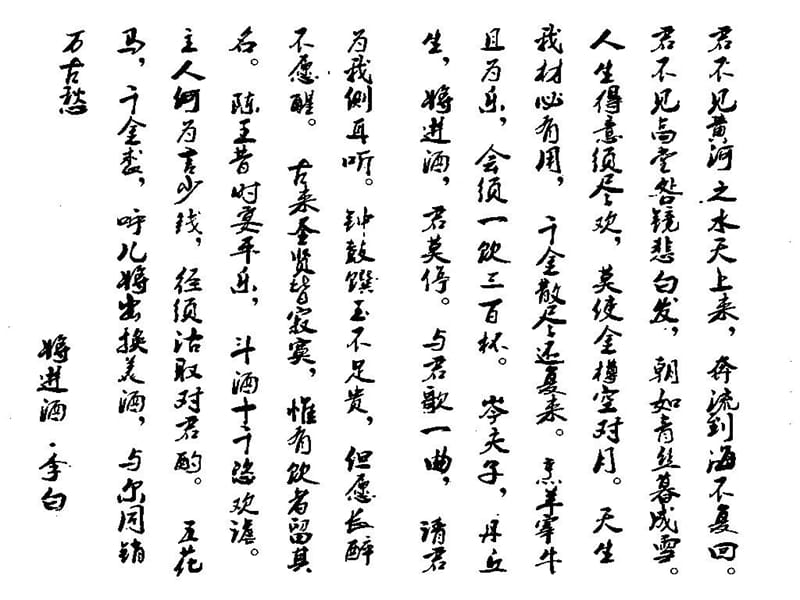 君不见黄河之水天上来，奔流到海不复回。
君不见高堂明镜悲白发，朝如青丝暮成雪。
人生得意须尽欢，莫使金樽空对月。天生
我材必有用，千金散尽还复来。烹羊宰牛
且为乐，会须一饮三百杯。岑夫子，丹丘
生，将进酒，君莫停。与君歌一曲，请君
为我侧耳听。钟鼓馔玉不足贵，但愿长醉
不愿醒。古来圣贤皆寂寞，惟有饮者留其
名。陈王昔时宴平乐，斗酒十千恣欢谑。
主人何为言少钱，径须沽取对君酌。五花
马，千金裘，呼儿将出换美酒，与尔同销
万古愁
将进酒·李白